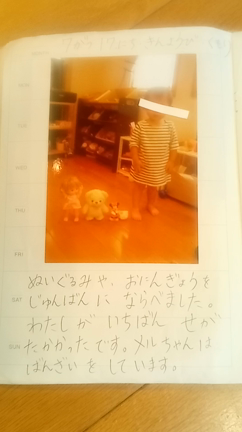 ぬいぐるみや、おにんぎょうを
じゅんばんに ならべました。
わたしが いちばん せが
たかかったです。メルちゃんは
ばんざいを しています。